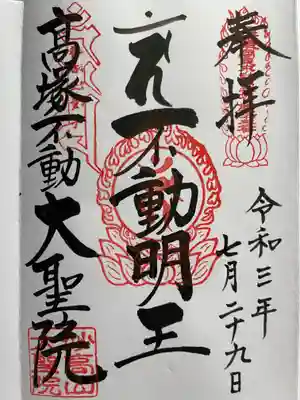 奉拝
令和三年
七月二十九日
不動明王
高塚不動
大聖院